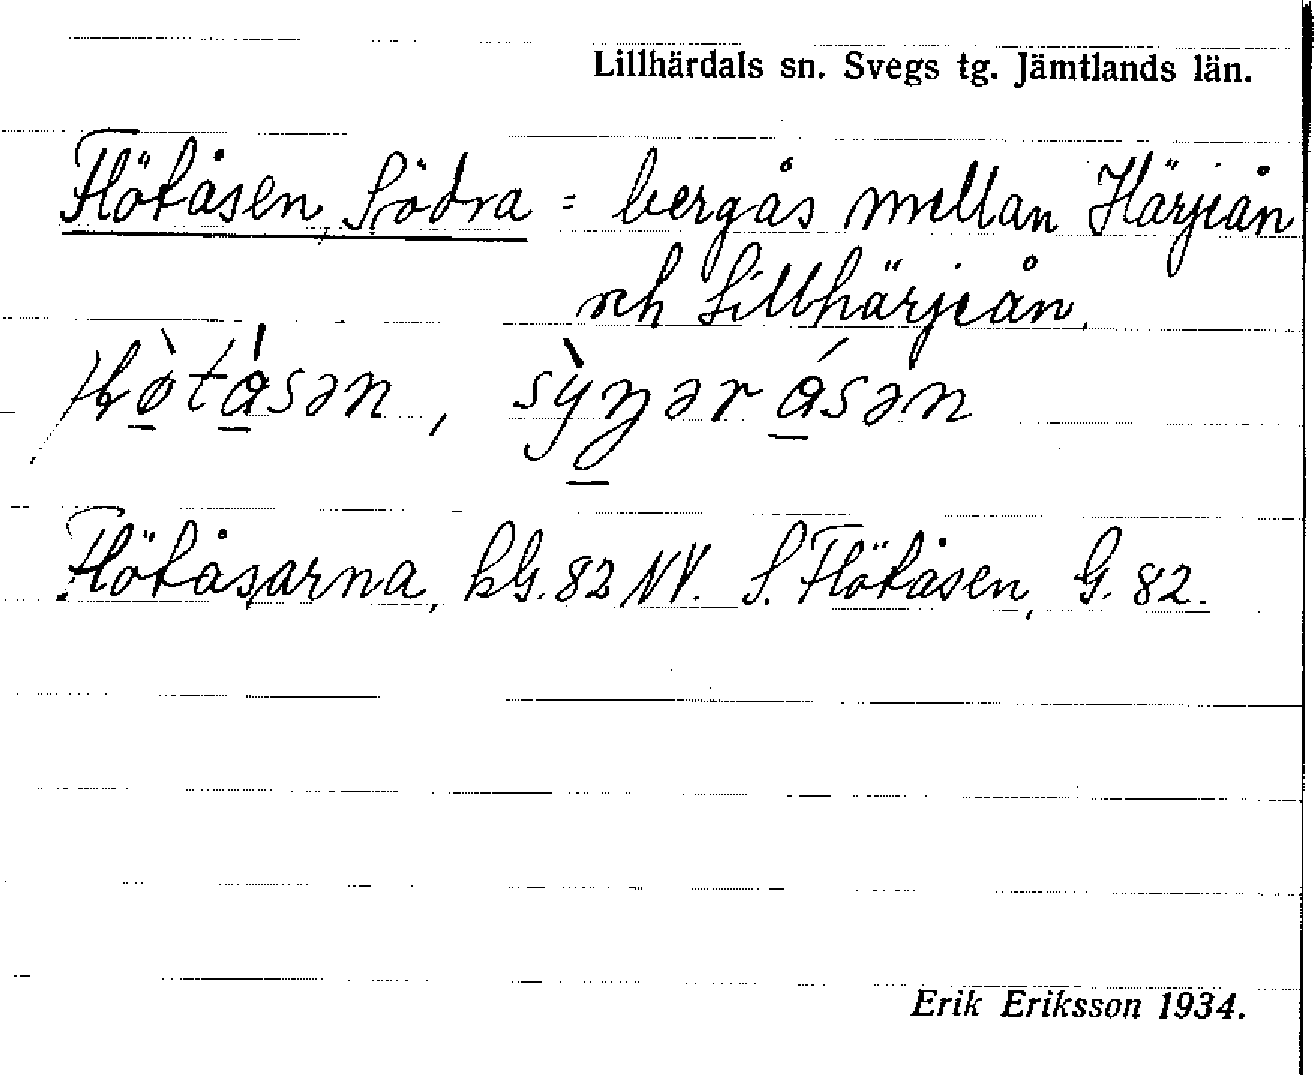 Lillhärdals sn. Svegs tg. Jämtlands län.
Flötåsen, Södra = bergås mellan Härjeån
och Lillhärjeån.
sỳɲər ásən
Flötåsarna, kG. 82 NV. S. Flötåsen, G. 82.
Erik Eriksson 1934.